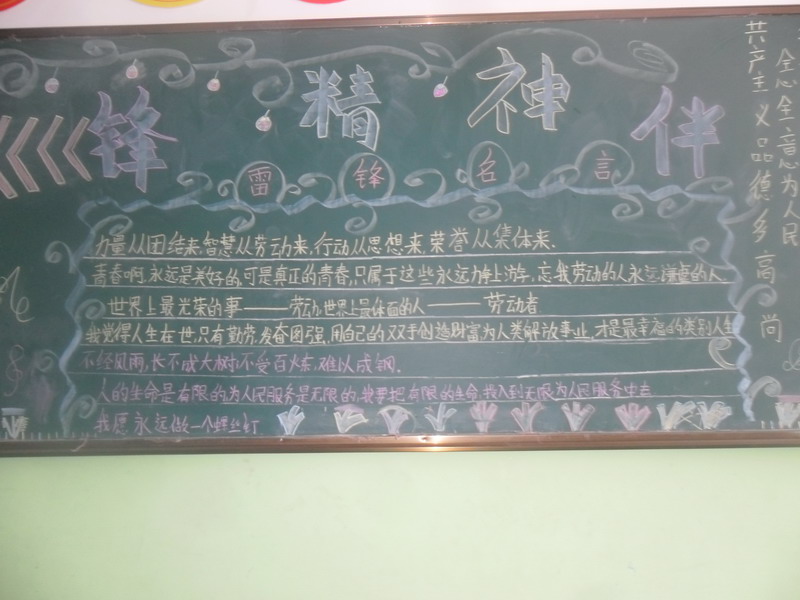 锋精神伴
雷锋名言
力量从团结来,智慧从劳动来,行动从思想来,荣誉从集体来.
青春啊,永远是美好的,可是真正的青春,只属于这些永远力争上游,忘我劳动的人永远谦虚的人
世界上最光荣的事——劳动,世界上最体面的人——劳动者
我觉得人生在世,只有勤劳,发奋图强,用自己的双手创造财富为人类解放事业,才是最幸福的
不经风雨,长不成大树,不受百炼,难以成钢.
人的生命是有限的,为人民服务是无限的,我要把有限的生命,投入到无限为人民服务中去
我愿永远做一个螺丝钉
全心全意为人民
共产主义品德多高尚